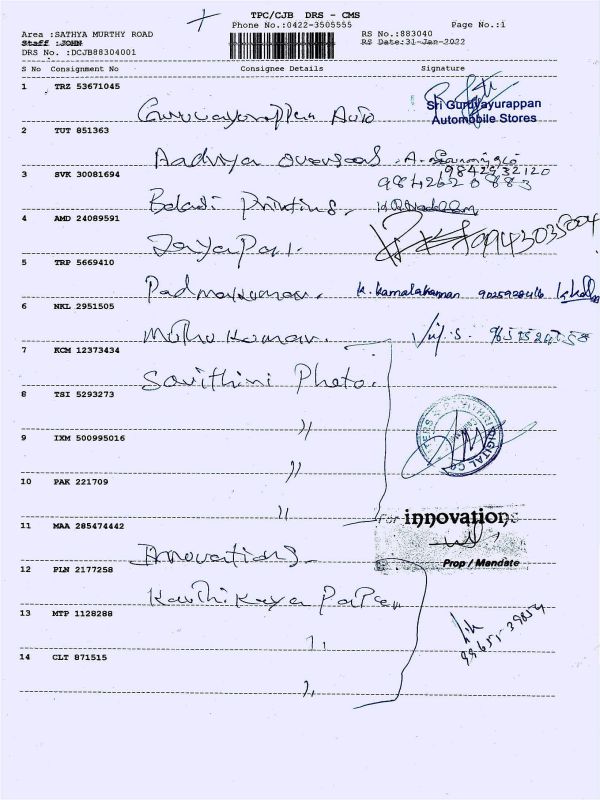 TPC/CJB DRS - CMS
Phone No.:0422-3505555
Page No.:1
Area :SATHYA MURTHY ROAD
RS No.:883040
Staff :JOHN
RS Date:31-Jan-2022
DRS No. :DCJB88304001
S No Consignment No Consignee Details Signature
1 TRZ 53671045
Guruvayurappan Auto
Sri Guruvayurappan
Automobile Stores
2 TUT 851363
Aadhya overseas A.
9842932120
3 SVK 30081694
9842620883
Balaji Printing.
4 AMD 24089591
JayaPart. 9943035004
5 TRP 5669410
Padmakumar. K. Kamalakannan 9025928416
6 NKL 2951505
Muthu Kumar.
7 KCM 12373434
Savithiri Photo.
8 TSI 5293273
"
DIGITAL
9 IXM 500995016
"
10 PAK 221709
"
For innovations
11 MAA 285474442
Innovations.
Prop / Mandate
12 PLN 2177258
Karthikaya Paper
13 MTP 1128288
"
99651-39854
14 CLT 871515
"